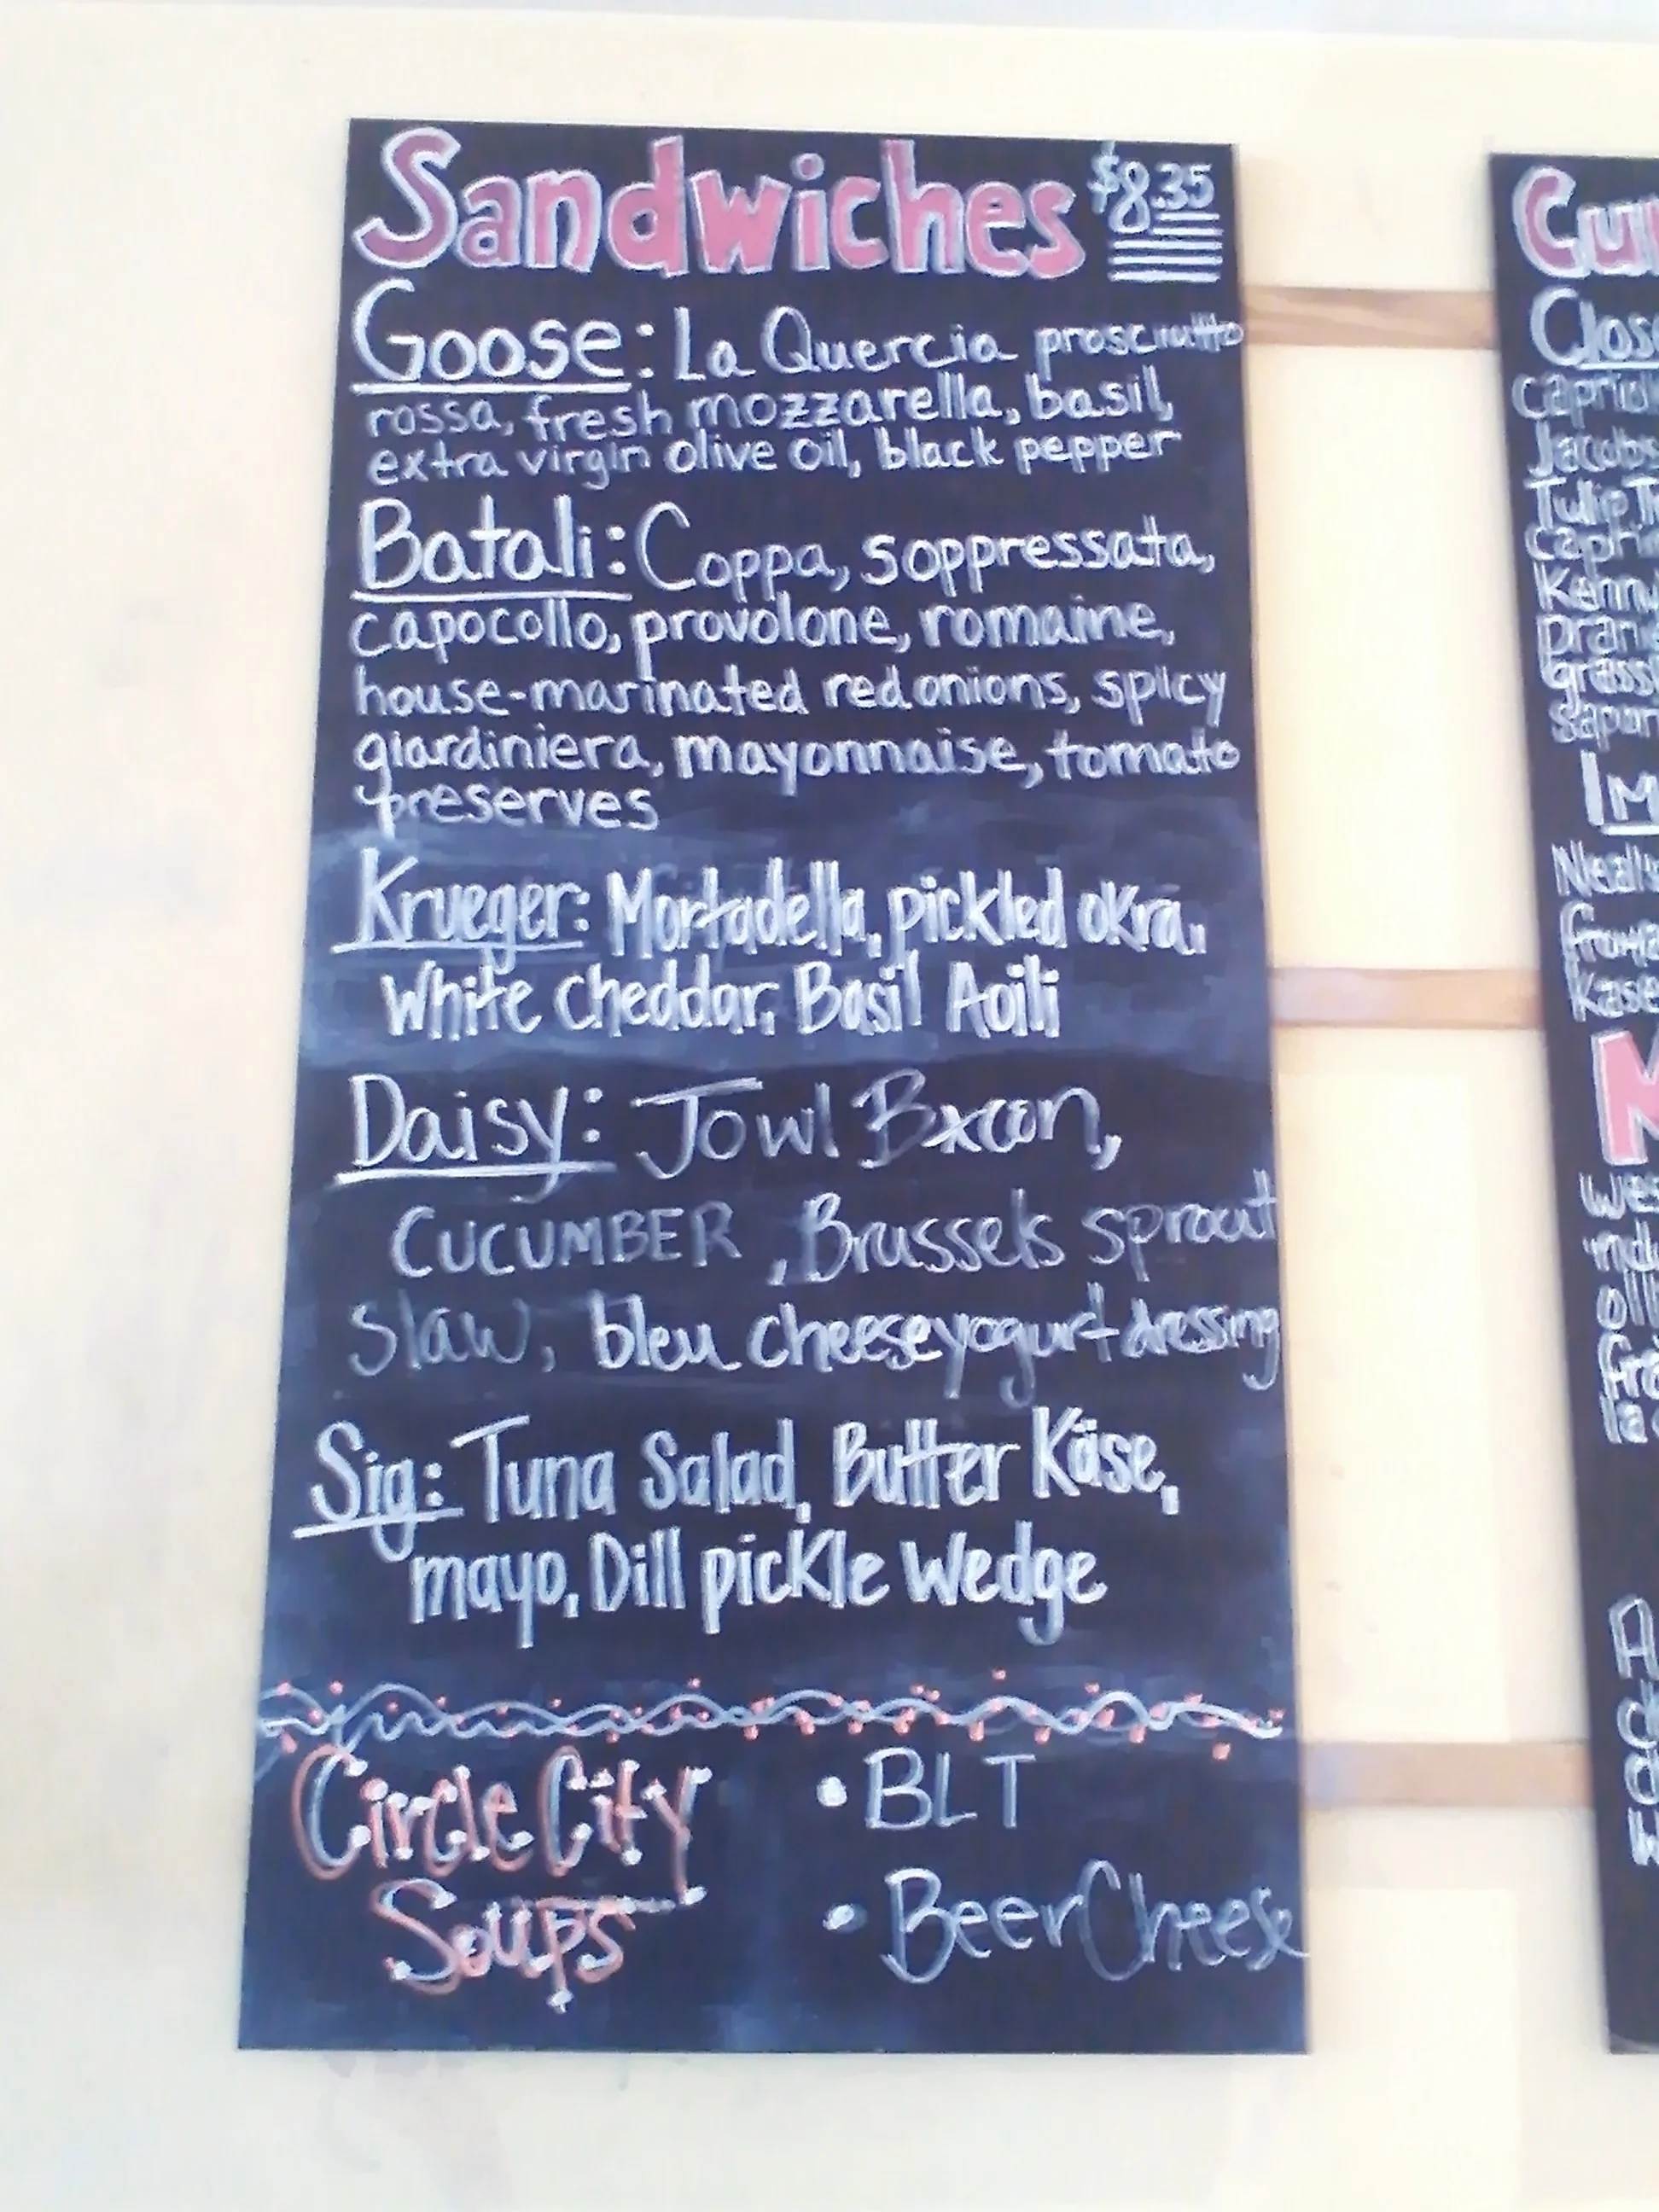 Sandwiches $8.35
Goose: La Quercia prosciutto
rossa, fresh mozzarella, basil,
extra virgin olive oil, black pepper
Batali: Coppa, soppressata,
capocollo, provolone, romaine,
house-marinated red onions, spicy
giardiniera, mayonnaise, tomato
preserves
Krueger: Mortadella, pickled okra,
White Cheddar, Basil Aoili
Daisy: Jowl Bacon,
CUCUMBER, Brussels sprout
slaw, bleu cheese yogurt dressing
Sig: Tuna Salad, Butter Käse,
mayo, Dill pickle Wedge
Circle City
Soups
• BLT
• Beer Cheese